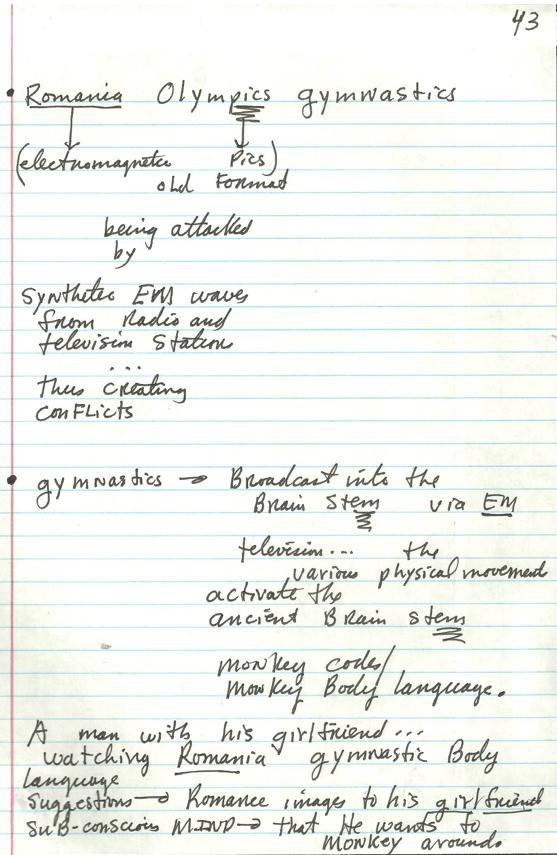 43
• Romania Olympics gymnastics
(electromagnetic Pics)
old Format
being attacked
by
synthetic EM waves
from Radio and
television station
...
thus creating
conflicts
• gymnastics → Broadcast into the
Brain stem via EM
television... the
various physical movement
activate the
ancient Brain stem
monkey codes/
monkey Body language.
A man with his girlfriend...
watching Romania gymnastic Body
language
suggestions → Romance images to his girlfriend
sub-conscious MIND → that He wants to
monkey around.